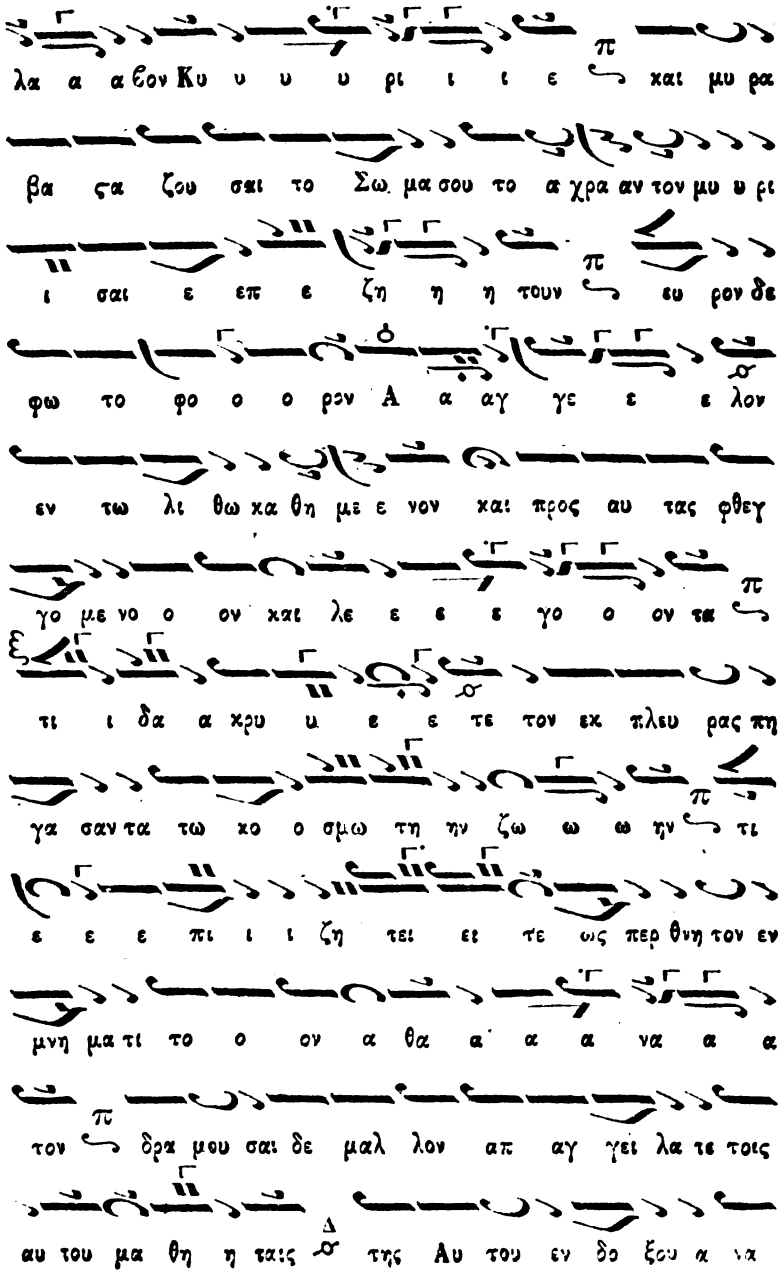 λα α α ϐον Κυ υ υ υ ρι ι ι ε π και μυ ρα
βα ϛα ζου σαι το Σω μα σου το α χρα αν τον μυ υ ρι
ι σαι ε επ ε ζη η η τουν π ευ ρον δε
φω το φο ο ο ρον Α α αγ γε ε ε λον
εν τω λι θω κα θη με ε νον και προς αυ τας φθεγ
γο με νο ο ον και λε ε ε ε γο ο ον τα π
τι ι δα α κρυ υ ε ε τε τον εκ πλευ ρας πη
γα σαν τα τω κο ο σμω τη ην ζω ω ω ην π τι
ε ε ε πι ι ι ζη τει ει τε ως περ θνη τον εν
μνη μα τι το ο ον α θα α α α να α α
τον π δρα μου σαι δε μαλ λον απ αγ γει λα τε τοις
αυ του μα θη η ταις Δ της Αυ του εν δο ξου α να